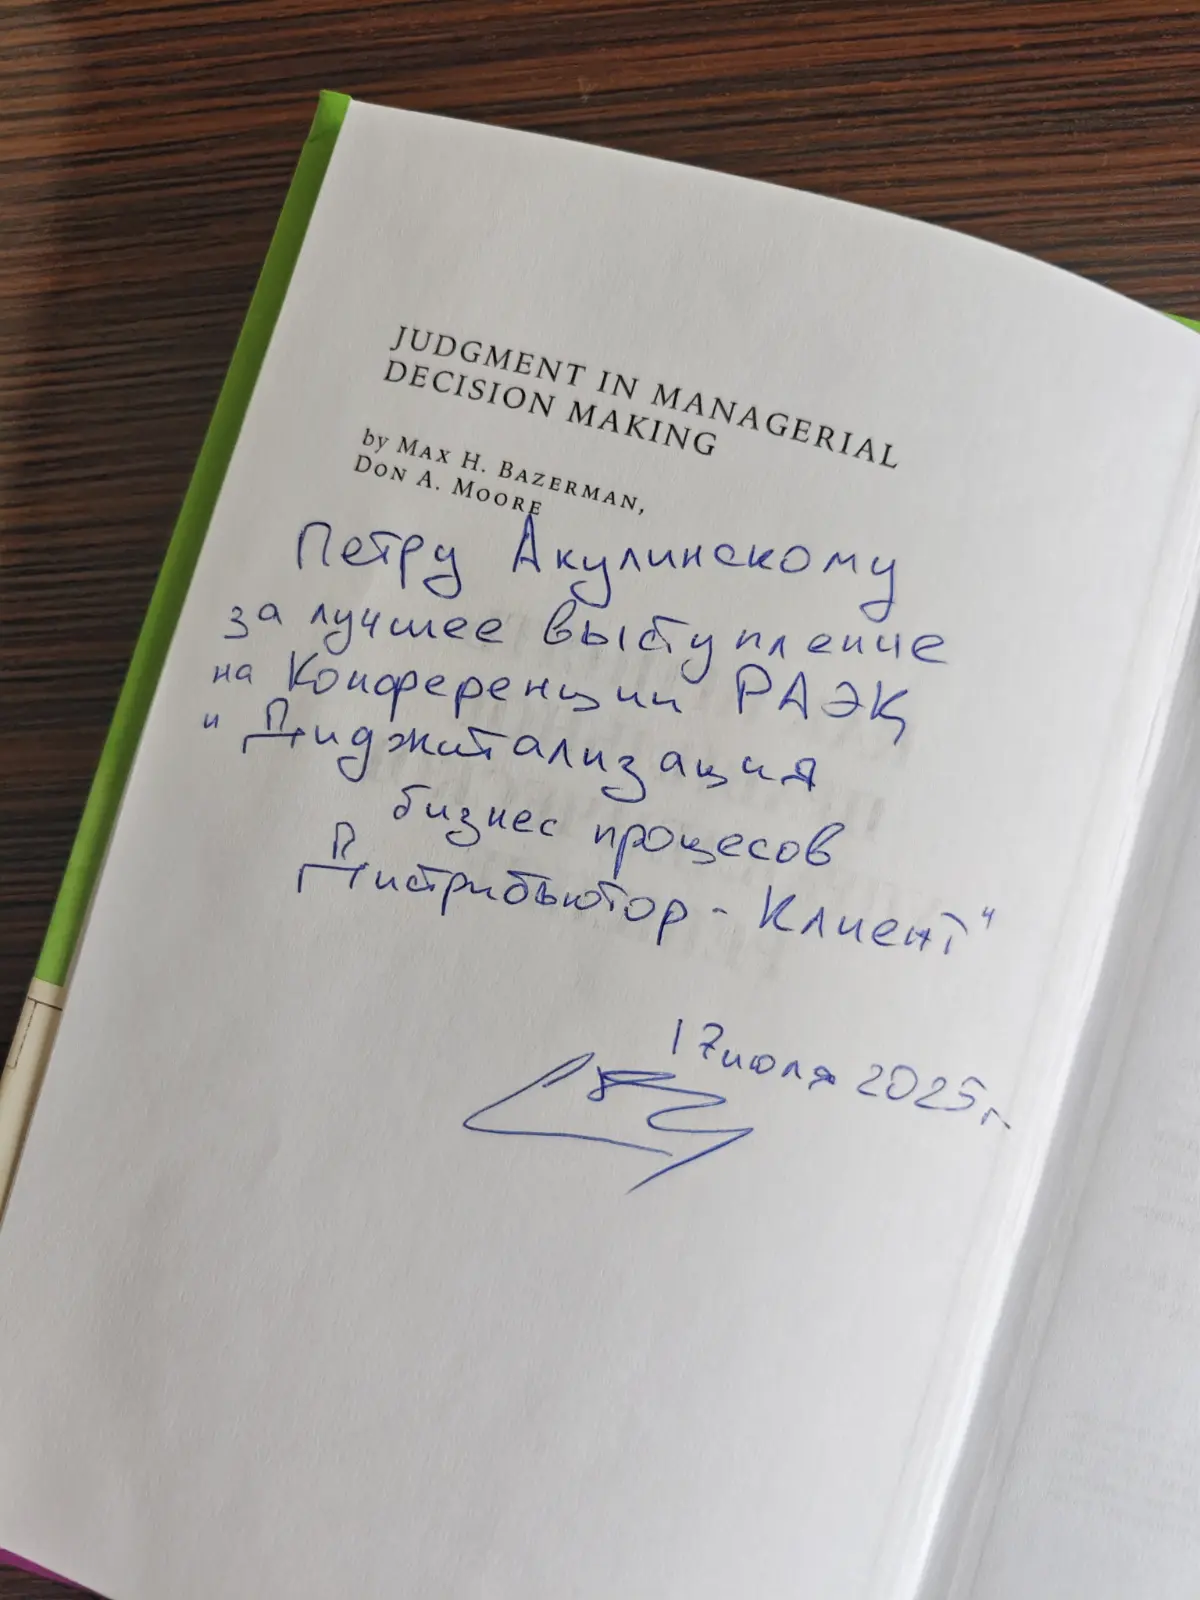 JUDGMENT IN MANAGERIAL
DECISION MAKING
by MAX H. BAZERMAN,
DON A. MOORE
Петру Акулинскому
за лучшее выступление
на Конференции РАЭК
"Диджитализация
бизнес процесов
Дистрибьютор - Клиент"
17 июля 2025 г.